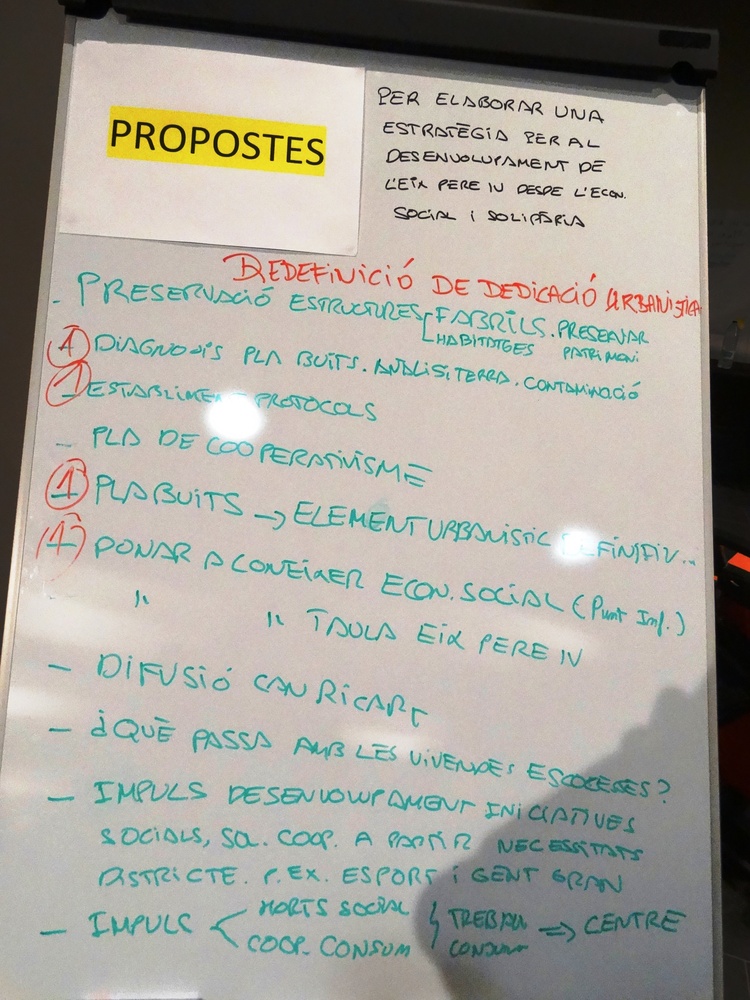 PROPOSTES
PER ELABORAR UNA
ESTRATÈGIA PER AL
DESENVOLUPAMENT DE
L'EIX PERE IV DESDE L'ECON.
SOCIAL I SOLIDÀRIA
REDEFINICIÓ DE DEDICACIÓ URBANISTICA
- PRESERVACIÓ ESTRUCTURES FABRILS. PRESERVAR
HABITATGES PATRIMONI
1 DIAGNOSIS PLA BUITS. ANALISI TERRA. CONTAMINACIÓ
1 ESTABLIMENT PROTOCOLS
- PLA DE COOPERATIVISME
1 PLA BUITS → ELEMENT URBANISTIC DEFINITIU...
1 DONAR A CONEIXER ECON. SOCIAL (Punt Inf.)
" " TAULA EIX PERE IV
- DIFUSIÓ CAN RICART
- ¿QUÈ PASSA AMB LES VIVENDES ESCOCESES?
- IMPULS DESENVOLUPAMENT INICIATIVES
SOCIALS, SOL. COOP. A PARTIR NECESSITATS
DISTRICTE. P. EX. ESPORT I GENT GRAN
- IMPULS < HORTS SOCIAL } TREBALL ⇒ CENTRE
COOP. CONSUM CONSUM